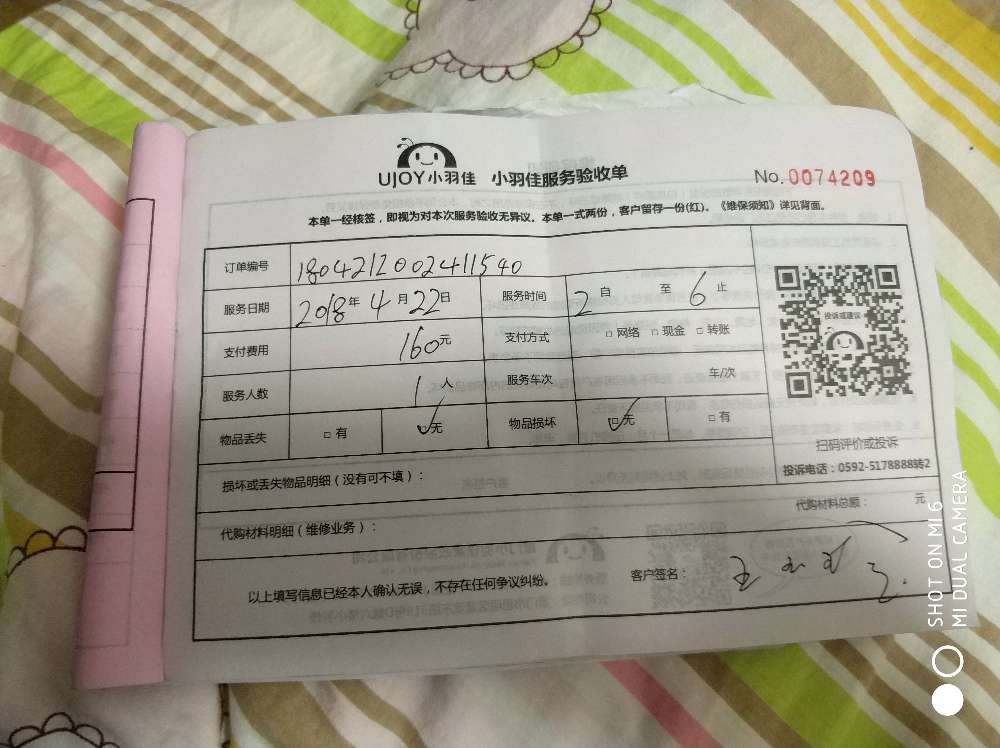 UJOY小羽佳 小羽佳服务验收单
No.0074209
本单一经核签，即视为对本次服务验收无异议。本单一式两份，客户留存一份(红)。《维保须知》详见背面。
订单编号 1804212002411540
服务日期 2018年4月22日 服务时间 2自 至6止
投诉或建议
支付费用 160元 支付方式 □网络 □现金 □转账
服务人数 1人 服务车次 车/次
物品丢失 □有 ☑无 物品损坏 ☑无 □有
扫码评价或投诉
投诉电话：0592-5178888转2
损坏或丢失物品明细（没有可不填）：
代购材料总额： 元
代购材料明细（维修业务）：
以上填写信息已经本人确认无误，不存在任何争议纠纷。 客户签名：
SHOT ON MI 6
MI DUAL CAMERA